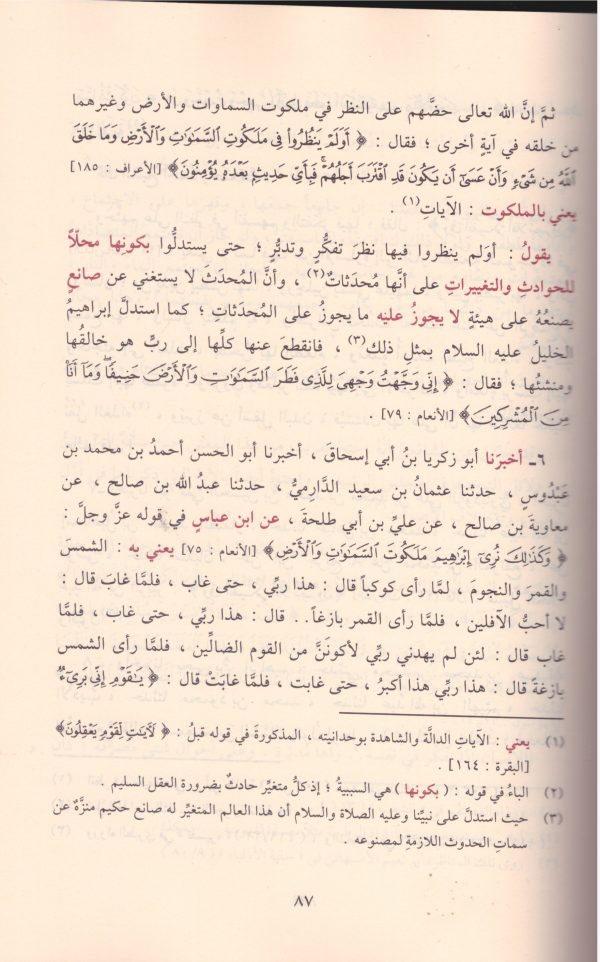 ثمَّ إنَّ الله تعالى حضَّهم على النظر في ملكوت السماوات والأرض وغيرهما
من خلقه في آيةٍ أخرى ؛ فقال : ﴿ أَوَلَمْ يَنظُرُواْ فِى مَلَكُوتِ ٱلسَّمَٰوَٰتِ وَٱلْأَرْضِ وَمَا خَلَقَ
ٱللَّهُ مِن شَىْءٍ وَأَنْ عَسَىٰٓ أَن يَكُونَ قَدِ ٱقْتَرَبَ أَجَلُهُمْ ۖ فَبِأَىِّ حَدِيثٍ بَعْدَهُۥ يُؤْمِنُونَ ﴾ [الأعراف : ١٨٥]
يعني بالملكوت : الآياتِ(١) .
يقولُ : أوَلم ينظروا فيها نظرَ تفكُّرٍ وتدبُّرٍ ؛ حتى يستدلُّوا بكونِها محلّاً
للحوادثِ والتغييراتِ على أنَّها مُحدَثاتٌ(٢) ، وأنَّ المُحدَثَ لا يستغني عن صانعٍ
يصنعُهُ على هيئةٍ لا يجوزُ عليه ما يجوزُ على المُحدَثاتِ ؛ كما استدلَّ إبراهيمُ
الخليلُ عليه السلام بمثلِ ذلك(٣) ، فانقطعَ عنها كلِّها إلى ربٍّ هو خالقُها
ومنشئُها ؛ فقال : ﴿ إِنِّى وَجَّهْتُ وَجْهِىَ لِلَّذِى فَطَرَ ٱلسَّمَٰوَٰتِ وَٱلْأَرْضَ حَنِيفًا ۖ وَمَآ أَنَا۠
مِنَ ٱلْمُشْرِكِينَ ﴾ [الأنعام : ٧٩] .
٦ـ أخبرَنا أبو زكريا بنُ أبي إسحاقَ ، أخبرنا أبو الحسن أحمدُ بن محمد بن
عَبْدُوسٍ ، حدثنا عثمانُ بن سعيد الدَّارِميُّ ، حدثنا عبدُ الله بن صالح ، عن
معاويةَ بن صالح ، عن عليِّ بن أبي طلحةَ ، عن ابن عباسٍ في قوله عزَّ وجلَّ :
﴿ وَكَذَٰلِكَ نُرِىٓ إِبْرَٰهِيمَ مَلَكُوتَ ٱلسَّمَٰوَٰتِ وَٱلْأَرْضِ ﴾ [الأنعام : ٧٥] يعني به : الشمسَ
والقمرَ والنجومَ ، لمَّا رأى كوكباً قال : هذا ربِّي ، حتى غاب ، فلمَّا غابَ قال :
لا أحبُّ الآفلين ، فلمَّا رأى القمر بازغاً.. قال : هذا ربِّي ، حتى غاب ، فلمَّا
غاب قال : لئن لم يهدني ربِّي لأكوننَّ من القوم الضالِّين ، فلمَّا رأى الشمس
بازغةً قال : هذا ربِّي هذا أكبرُ ، حتى غابت ، فلمَّا غابَتْ قال : ﴿ يَٰقَوْمِ إِنِّى بَرِىٓءٌ
(١) يعني : الآياتِ الدالَّة والشاهدة بوحدانيته ، المذكورةَ في قوله قبلُ : ﴿ لَأٓيَٰتٍ لِّقَوْمٍ يَعْقِلُونَ ﴾
[البقرة : ١٦٤] .
(٢) الباءُ في قوله : ( بكونها ) هي السببيةُ ؛ إذ كلُّ متغيِّر حادثٌ بضرورة العقل السليم .
(٣) حيث استدلَّ على نبيِّنا وعليه الصلاة والسلام أن هذا العالم المتغيِّر له صانع حكيم منزَّهٌ عن
سماتِ الحدوث اللازمةِ لمصنوعه .
٨٧